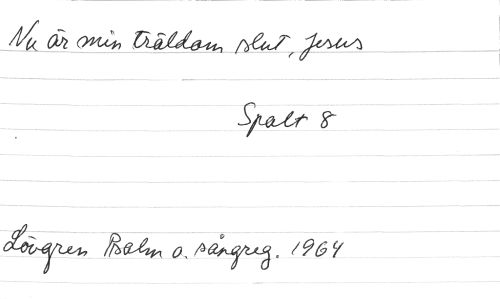 Nu är min träldom slut, Jesus
Spalt 8
Lövgren Psalm o. sångreg. 1964